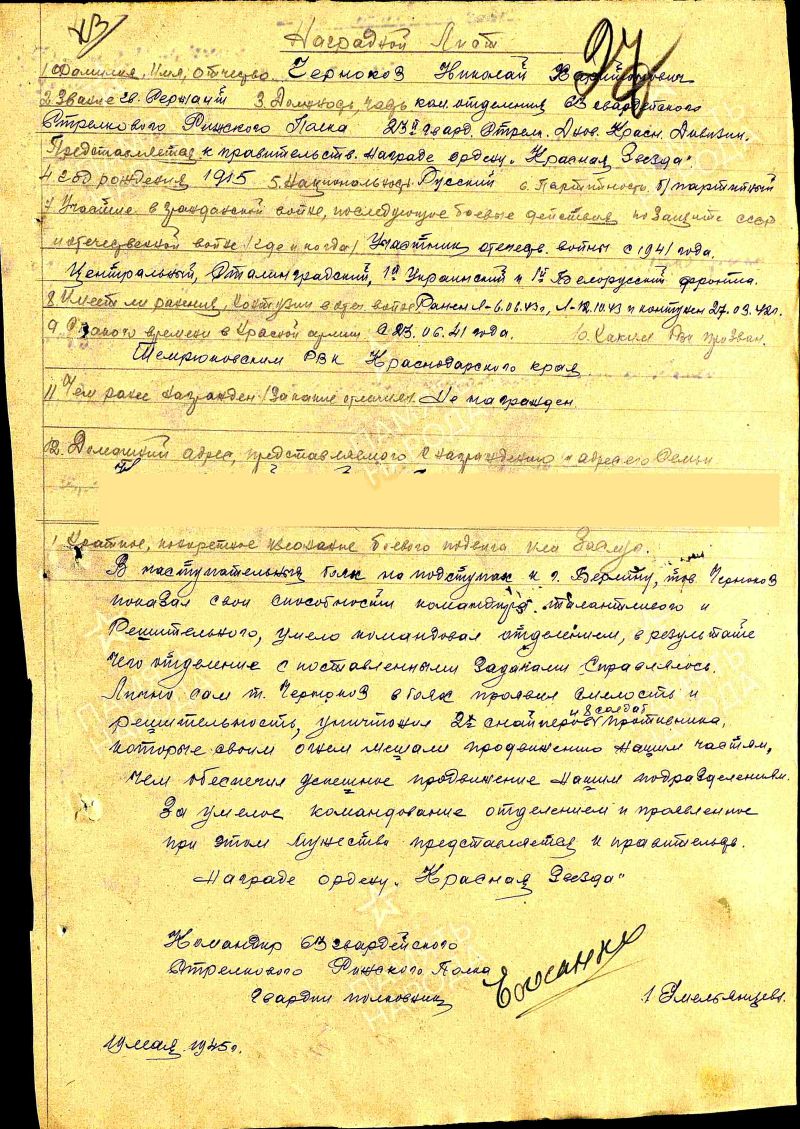 КЗ
Наградной Лист
1 Фамилия, Имя, Отчество Черноков Николай Харитонович
2 Звание гв. Сержант 3. Должность, часть ком. отделения 63 гвардейского
Стрелкового Рижского Полка гвард. Стрелк. Краснозн. Дивизии.
Представляется к правительств. награде ордену "Красная Звезда"
4. Год рождения 1915 5. Национальность Русский 6. Партийность б/партийный
7 Участие в гражданской войне, последующие боевые действия по защите СССР
и отечественной войне (где и когда) Участник отечеств. войны с 1941 года.
Центральный, Сталинградский, 1й Украинский и 1й Белорусский фронта.
8. Имеет ли ранения, контузии в отеч. войне Ранен Л-6.06.43г., Л-12.10.43 и контужен 27.03.42г.
9. С какого времени в Красной армии С 23.06.41 года. 10. Каким Рвк призван.
Темрюковским РВК Краснодарского края.
11. Чем ранее награжден (за какие отличия) Не награжден
12. Домашний адрес, представляемого к награждению и адрес его Семьи
1 Краткое, конкретное изложение боевого подвига или Заслуг.
В наступательных боях на подступах к г. Берлину, тов. Черноков
показал свои способности командира талантливого и
Решительного, умело командовал отделением, в результате
чего отделение с поставленными Задачами Справлялось.
Лично сам т. Черноков в боях проявил смелость и
решительность, уничтожил 2х снайперов и 8 солдат противника,
которые своим огнем мешали продвижению нашим частям,
чем обеспечил успешное продвижение нашим подразделениям.
За умелое командование отделением и проявленное
при этом мужество представляется к правительств.
Награде ордену "Красная Звезда"
Командир 63 гвардейского
Стрелкового Рижского Полка
Гвардии полковник / Емельянцев.
19 мая 1945г.
ПАМЯТЬ НАРОДА